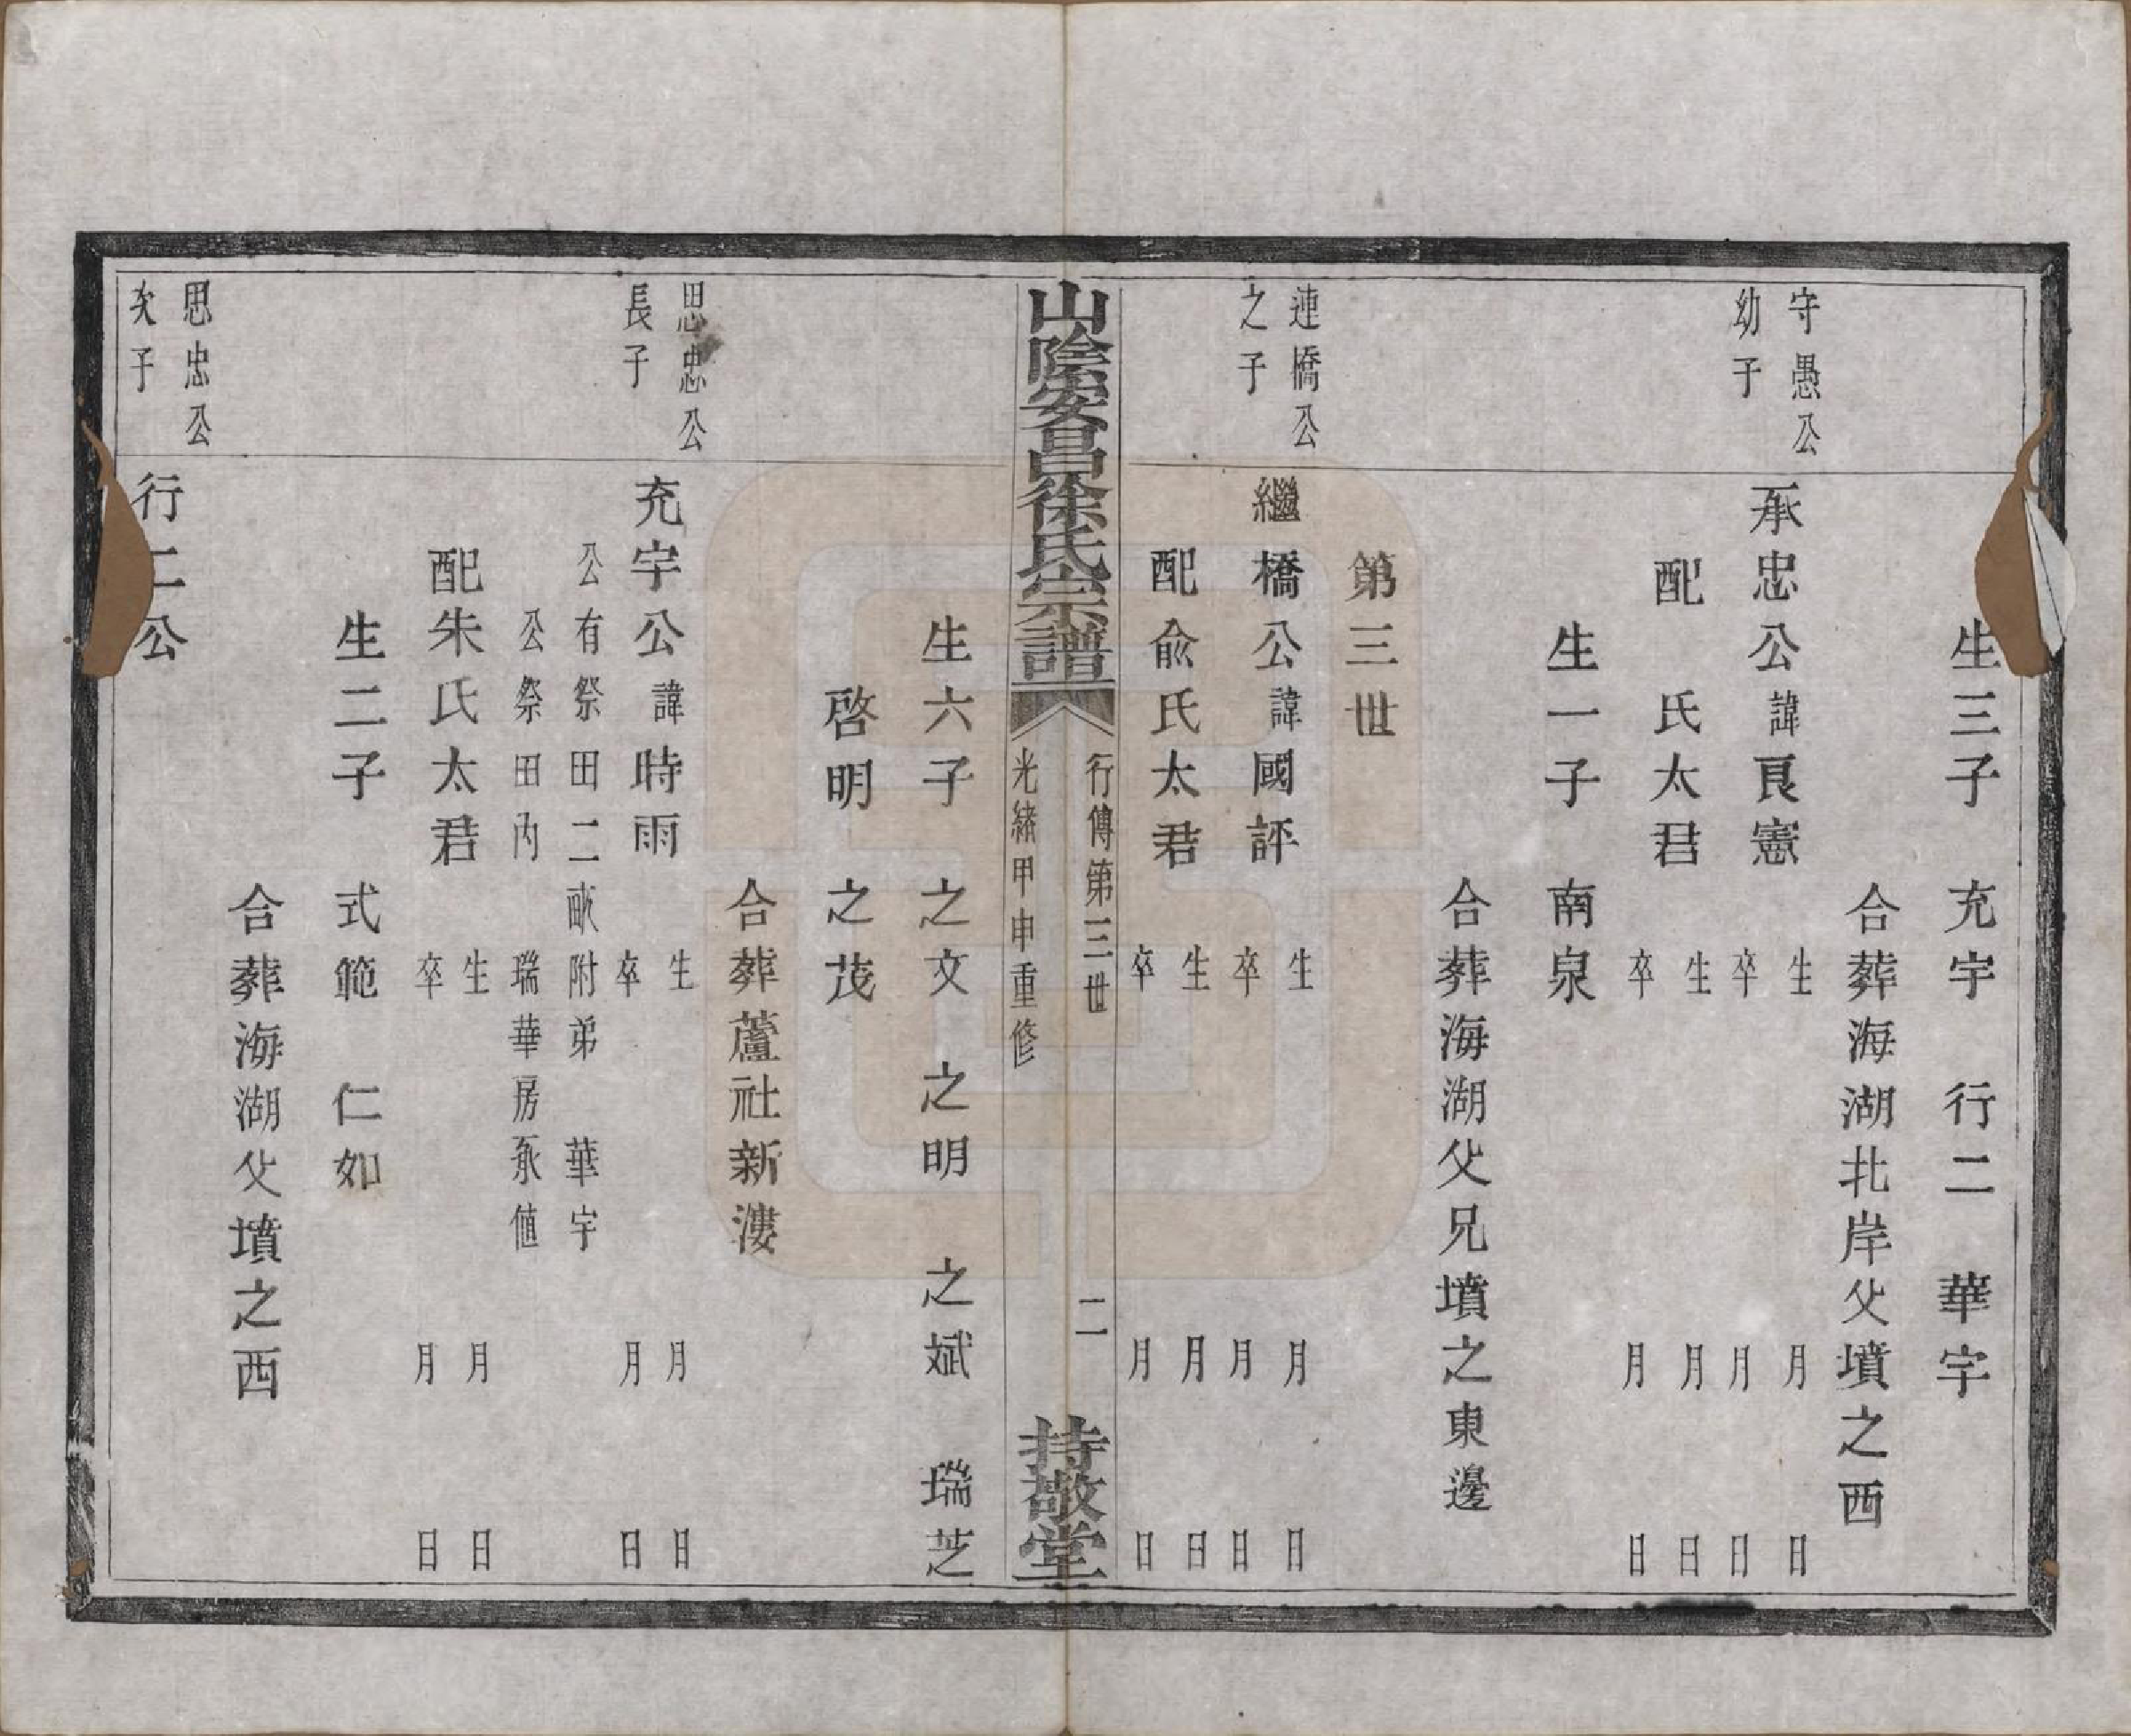 生三子　充宇　行二　華宇
合葬海湖北岸父墳之西
守愚公
幼子
承忠公諱良憲
生　月　日
卒　月　日
配　氏太君
生　月　日
卒　月　日
生一子　南泉
合葬海湖父兄墳之東邊
第三世
連橋公
之子
繼橋公諱國評
生　月　日
卒　月　日
配俞氏太君
生　月　日
卒　月　日
山陰安昌徐氏宗譜
行傳第三世　二
光緒甲申重修
持敬堂
生六子　之文　之明　之斌　瑞芝
啓明　之茂
合葬蘆社新漊
思忠公
長子
充宇公諱時雨
生　月　日
卒　月　日
公有祭田二畝附弟　華宇
公祭田內　瑞華房永值
配朱氏太君
生　月　日
卒　月　日
生二子　式範　仁如
合葬海湖父墳之西
思忠公
次子
行二公